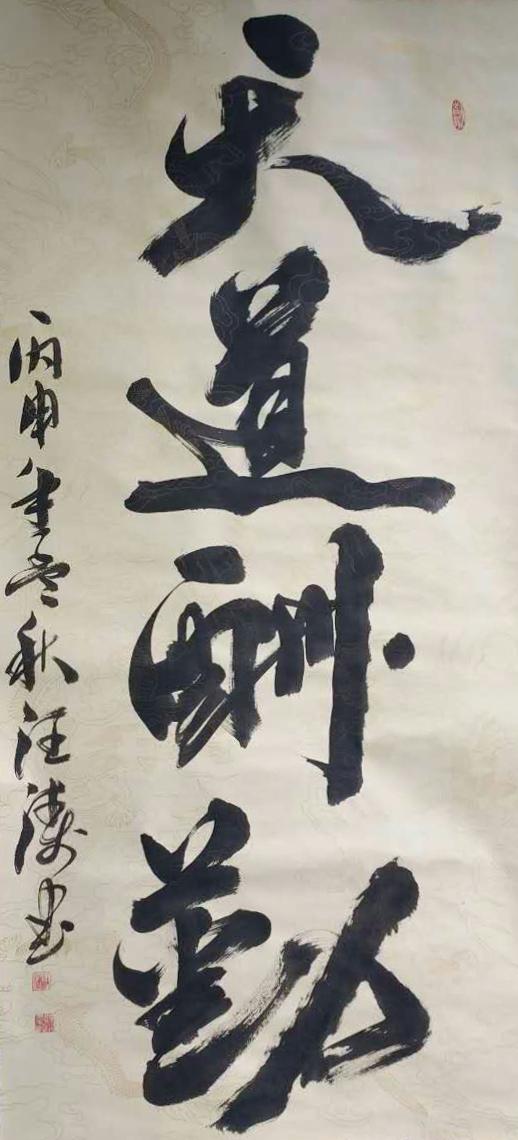 天道酬勤
丙申年孟秋汪涛书